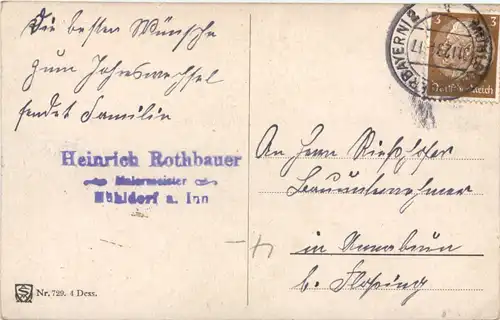 Die besten Wünsche
zum Jahreswechsel
sendet Familie
Heinrich Rothbauer
Malermeister
Mühldorf a. Inn
Nr. 729. 4 Dess.
3 3
Deutsches Reich
An Herrn
Bauunternehmer
in
b. Flossing